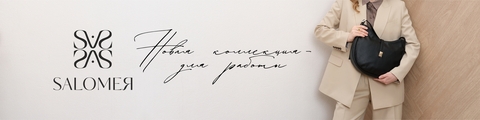 SALOMEЯ
Новая коллекция -
для работы